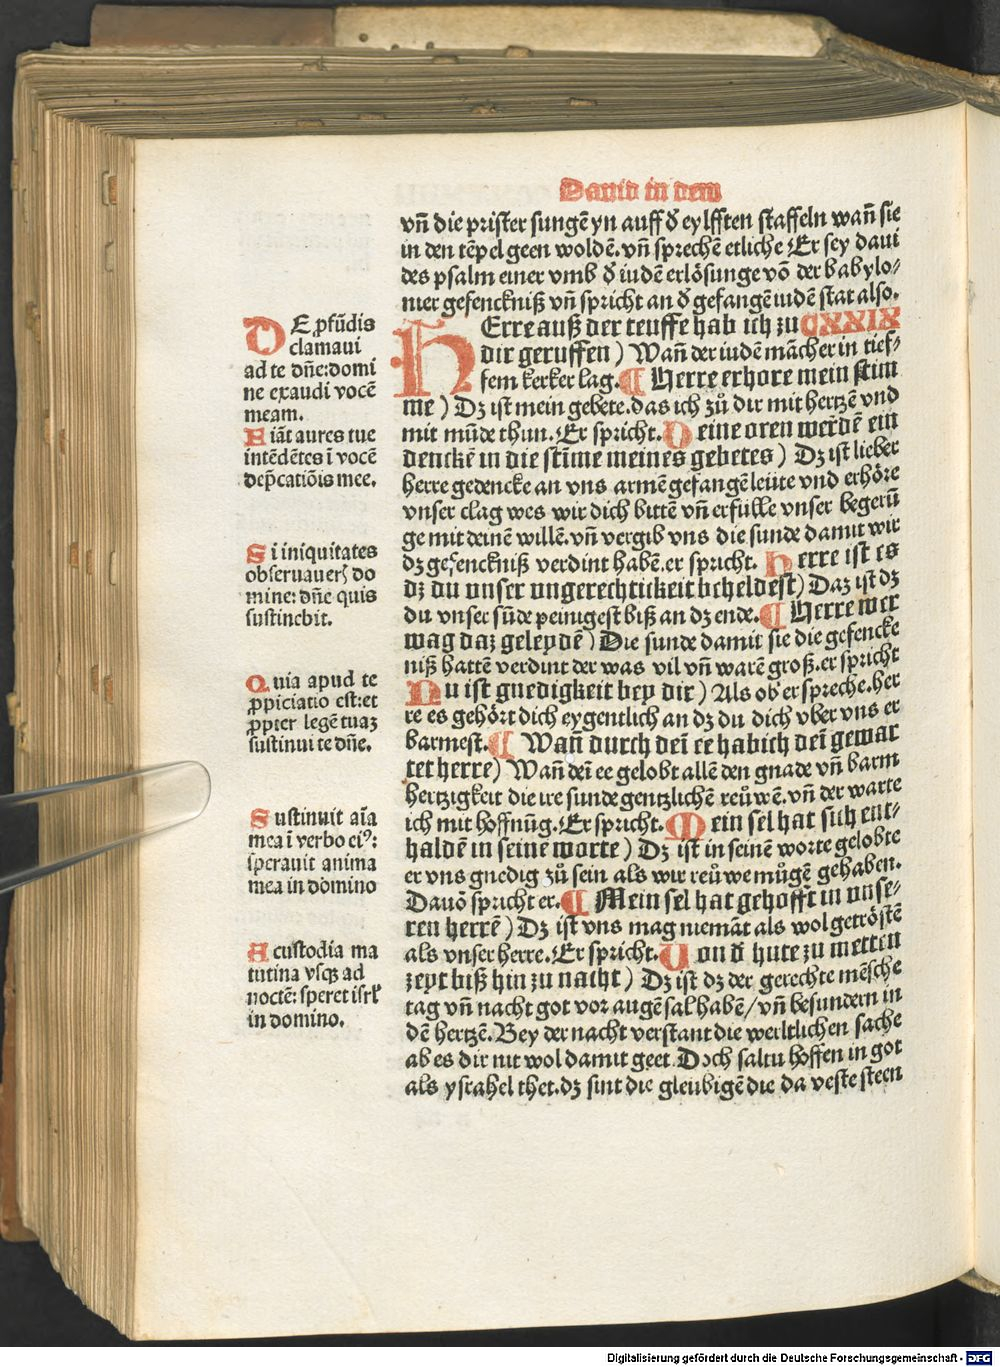 Dauid in dem
vñ die prister sungē yn auff ď eylfften staffeln wañ sie
in den tēpel geen woldē. vñ sprechē etliche Er sey daui
des psalm einer vmb ď iudē erlösunge vō der babylo⸗
nier gefenckniß vñ spricht an ď gefangē iudē stat also.
HErre auß der teuffe hab ich zu CXXIX
dir geruffen) Wañ der iudē mācher in tief⸗
fem kerker lag. ¶ Herre erhore mein stim
me) Dz ist mein gebete. das ich zů dir mit hertzē vnd
mit mūde thun. Er spricht. Deine oren werdē ein
denckē in die stīme meines gebetes) Dz ist lieber
herre gedencke an vns armē gefangē leüte vnd erhöre
vnser clag wes wir dich bittē vñ erfülle vnser begerū
ge mit deinē willē. vñ vergib vns die sunde damit wir
dz gefenckniß verdint habē. er spricht. Herre ist es
dz du vnser vngerechtikeit beheldest) Daz ist dz
du vnser sūde peinigest biß an dz ende. ¶ Herre wer
mag daz geleydē) Die sunde damit sie die gefencke
niß hattē verdint der was vil vñ warē groß. er spricht
Nu ist gnedigkeit bey dir) Als ob er spreche. her
re es gehört dich eygentlich an dz du dich vber vns er
barmest. ¶ Wañ durch deī ee hab ich deī gewar
tet herre) Wañ deī ee gelobt allē den gnade vñ barm
hertzigkeit die ire sunde gentzlichē reüwē. vñ der warte
ich mit hoffnūg. Er spricht. Mein sel hat sich ent⸗
haldē in seinē worte) Dz ist in seinē worte gelobte
er vns gnedig zů sein als wir reüwe můgē gehaben.
Dauō spricht er. ¶ Mein sel hat gehofft in vnse⸗
ren herrē) Dz ist vns mag niemāt als wol getröstē
als vnser herre. Er spricht. Von ď hute zu mettin
zeyt biß hin zu nacht) Dz ist dz der gerechte mēsche
tag vñ nacht got vor augē sal habē/ vñ besundern in
dē hertzē. Bey der nacht verstant die werltlichen sache
ab es dir nit wol damit geet. Doch saltu hoffen in got
als ysrahel thet. dz sint die gleubigē die da veste steen
DE ꝓfūdis
clamaui
ad te dñe: domi
ne exaudi vocē
meam.
Fiāt aures tue
intēdētes ī vocē
dep̄catiōis mee.
Si iniquitates
obseruaueris do
mine: dñe quis
sustinebit.
Quia apud te
ꝓpiciatio est: et
ꝓpter legē tuaz
sustinui te dñe.
Sustinuit aīa
mea ī verbo eiꝰ:
sperauit anima
mea in domino
A custodia ma
tutina vsqꝫ ad
noctē: speret isrł
in domino.
Digitalisierung gefördert durch die Deutsche Forschungsgemeinschaft - DFG